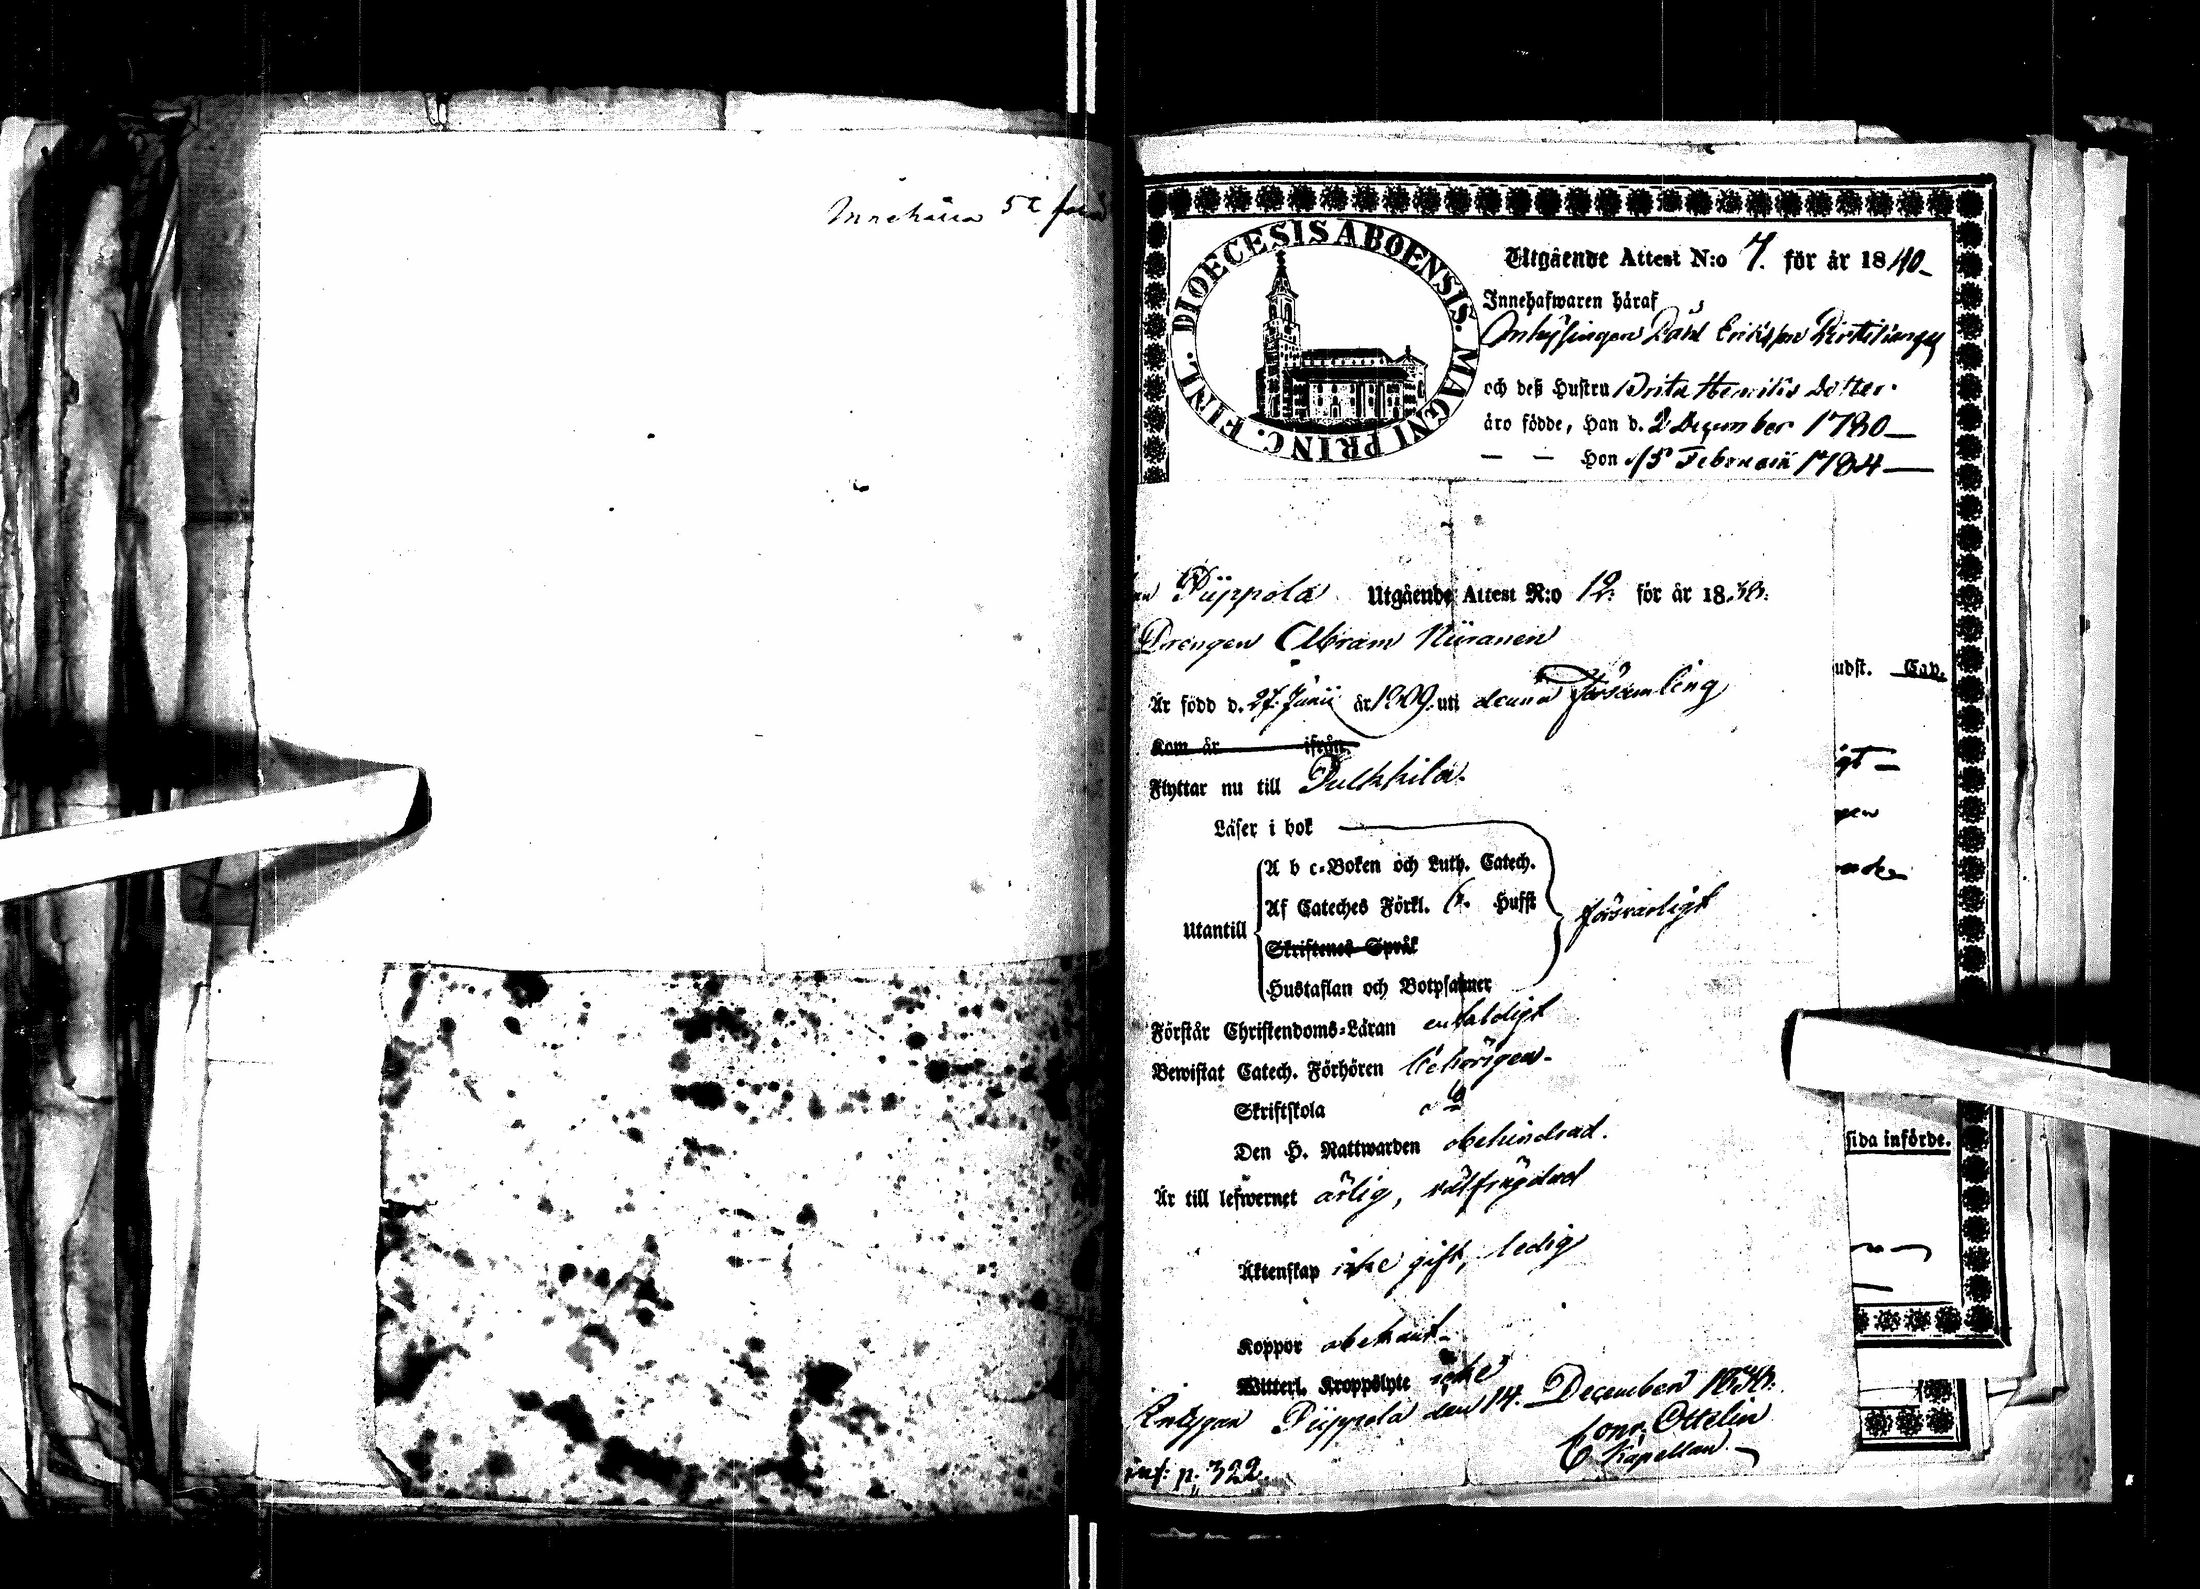 Innehålla 52
DIOECESIS ABOENSIS. MAGNI PRINC. FINL.
Utgående Attest N:o 7. för år 1840
Innehafwaren häraf
Inhysingen Påhl Eriksson
och deß Hustru Brita Henriks Dotter
äro födde, Han d. 2 December 1780
— — Hon 15 Februarii 1784
Piippola Utgående Attest N:o 12. för år 1836.
Drengen Abram Niiranen
Är född d. 27 Junii år 1809. uti denna Församling
Kom år ifrån
Flyttar nu till Pulkkila.
Läser i bok
A b c-Boken och Luth. Catech.
Af Cateches Förkl. 6. Hufst
Utantill
försvarligt
Skriftenes Språk
Hustaflan och Botpsalmer
Förstår Christendoms-Läran enfaldigt
Bewistat Catech. Förhören behörigen
Skriftskola do
Den H. Nattwarden obehindrad.
Är till lefwernet ärlig, välfrägdad
Äktenskap icke gift, ledig
Koppor
Witterl. Kroppslyte icke
Intygar Piippola den 14. December 1836.
Conr. Ottelin
Kapellan
inf: p: 322.
udst. Cap.
sida införde.